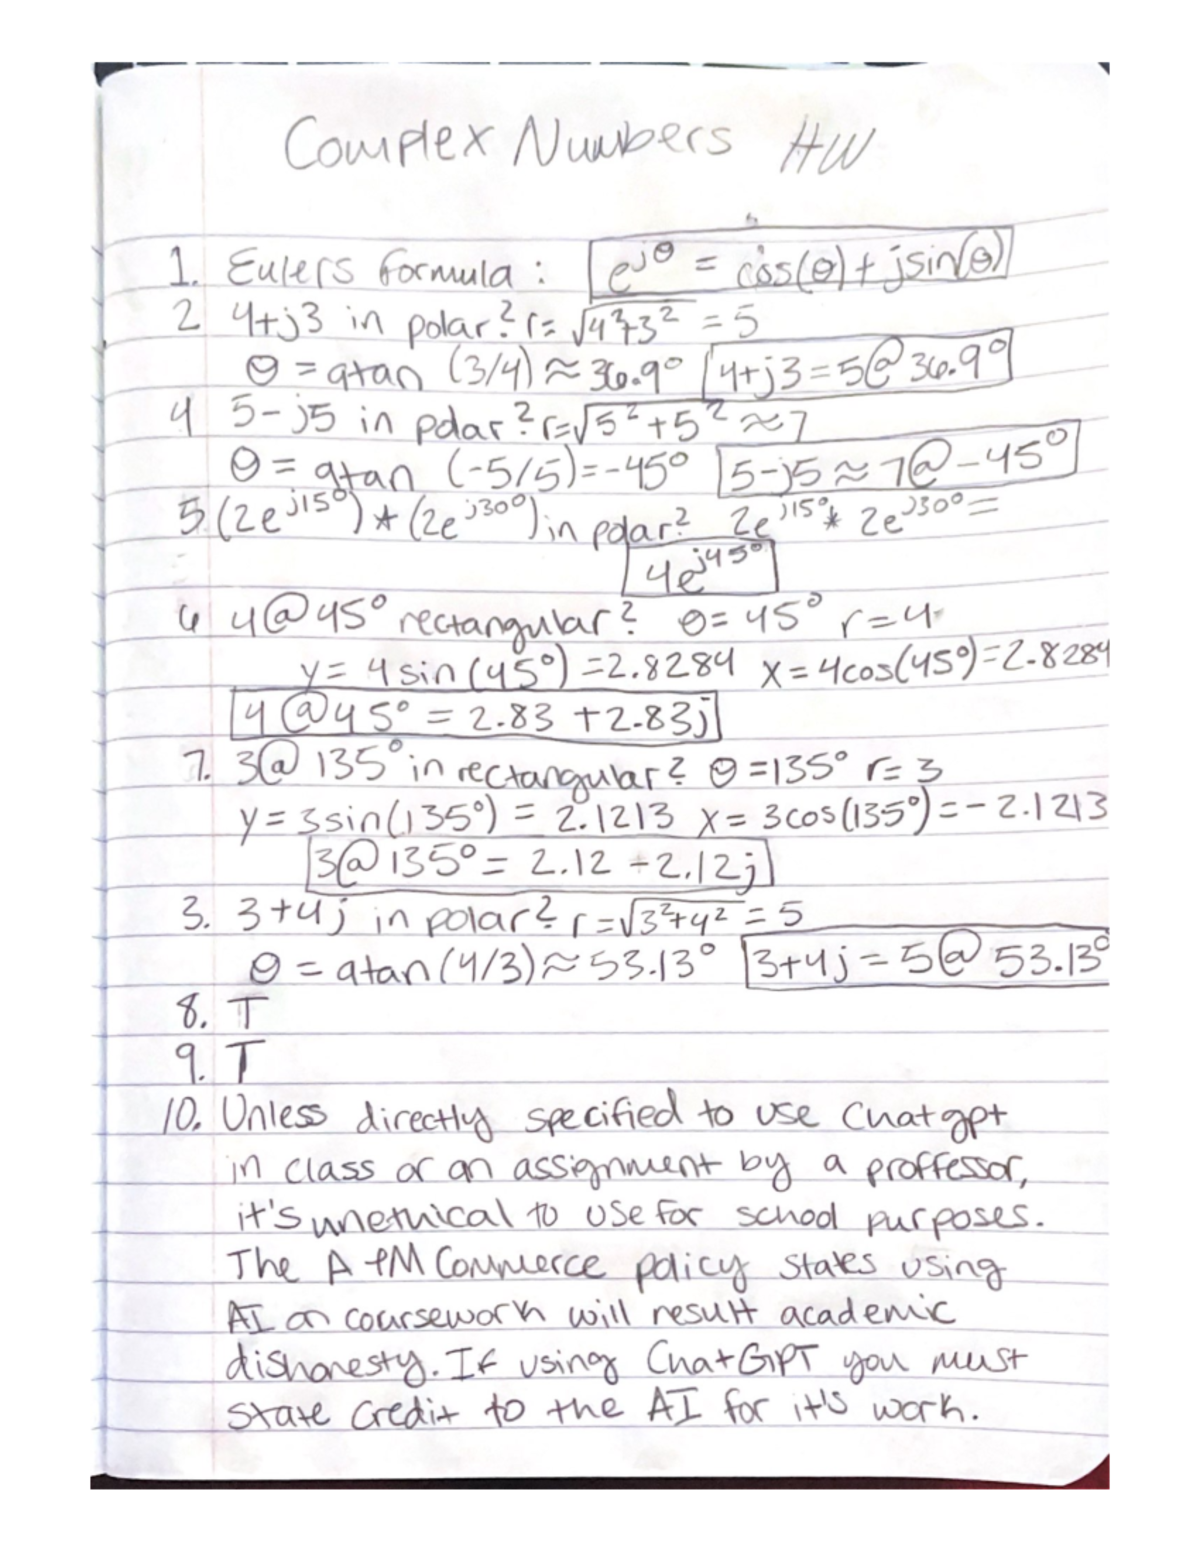 Complex Numbers HW
1. Eulers formula: e^jθ = cos(θ) + jsin(θ)
2 4+j3 in polar? r= √4²+3² = 5
θ = atan (3/4) ≈ 36.9° 4+j3 = 5@ 36.9°
4 5-j5 in polar? r=√5²+5² ≈ 7
θ = atan (-5/5) = -45° 5-j5 ≈ 7@ -45°
5. (2e^j15°) * (2e^j30°) in polar? 2e^j15° * 2e^j30° =
4e^j45°
6 4@45° rectangular? θ = 45° r = 4
y = 4sin(45°) = 2.8284 x = 4cos(45°) = 2.8284
4@45° = 2.83 + 2.83j
7. 3@ 135° in rectangular? θ = 135° r = 3
y = 3sin(135°) = 2.1213 x = 3cos(135°) = -2.1213
3@135° = 2.12 - 2.12j
3. 3+4j in polar? r = √3²+4² = 5
θ = atan(4/3) ≈ 53.13° 3+4j = 5@ 53.13°
8. T
9. T
10. Unless directly specified to use Chatgpt
in class or an assignment by a proffessor,
it's unethical to use for school purposes.
The A+M Commerce policy states using
AI on coursework will result academic
dishonesty. If using ChatGPT you must
state credit to the AI for it's work.